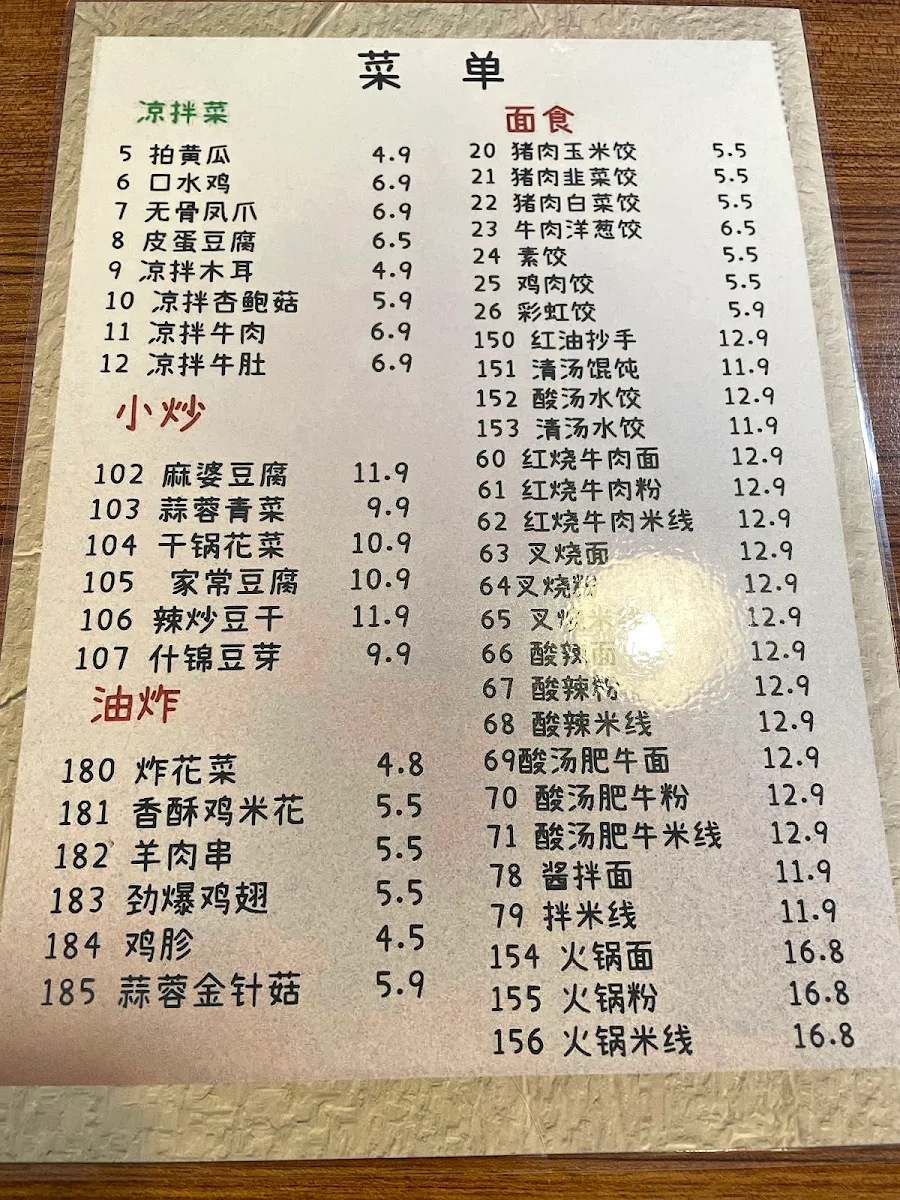 菜 单
凉拌菜
5 拍黄瓜 4.9
6 口水鸡 6.9
7 无骨凤爪 6.9
8 皮蛋豆腐 6.5
9 凉拌木耳 4.9
10 凉拌杏鲍菇 5.9
11 凉拌牛肉 6.9
12 凉拌牛肚 6.9
小炒
102 麻婆豆腐 11.9
103 蒜蓉青菜 9.9
104 干锅花菜 10.9
105 家常豆腐 10.9
106 辣炒豆干 11.9
107 什锦豆芽 9.9
油炸
180 炸花菜 4.8
181 香酥鸡米花 5.5
182 羊肉串 5.5
183 劲爆鸡翅 5.5
184 鸡胗 4.5
185 蒜蓉金针菇 5.9
面食
20 猪肉玉米饺 5.5
21 猪肉韭菜饺 5.5
22 猪肉白菜饺 5.5
23 牛肉洋葱饺 6.5
24 素饺 5.5
25 鸡肉饺 5.5
26 彩虹饺 5.9
150 红油抄手 12.9
151 清汤馄饨 11.9
152 酸汤水饺 12.9
153 清汤水饺 11.9
60 红烧牛肉面 12.9
61 红烧牛肉粉 12.9
62 红烧牛肉米线 12.9
63 叉烧面 12.9
64叉烧粉 12.9
65 叉烧米线 12.9
66 酸辣面 12.9
67 酸辣粉 12.9
68 酸辣米线 12.9
69酸汤肥牛面 12.9
70 酸汤肥牛粉 12.9
71 酸汤肥牛米线 12.9
78 酱拌面 11.9
79 拌米线 11.9
154 火锅面 16.8
155 火锅粉 16.8
156 火锅米线 16.8